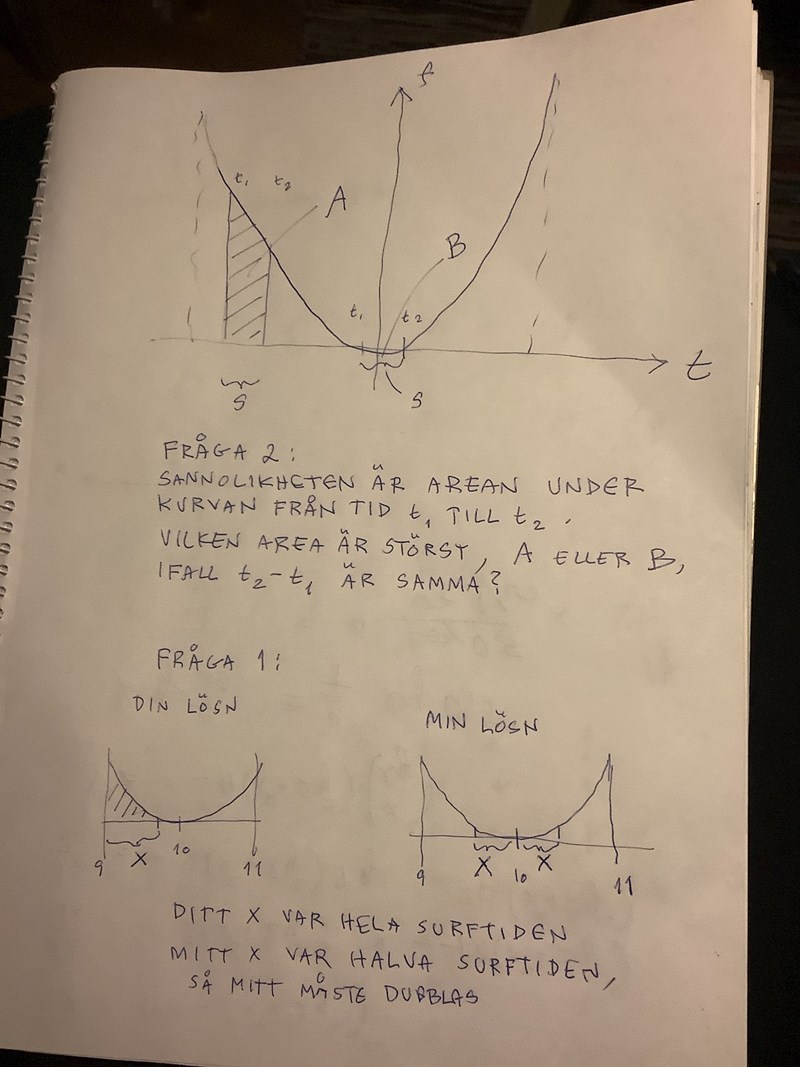 f
t₁ t₂
A
B
t₁ t₂
t
S
S
FRÅGA 2:
SANNOLIKHETEN ÄR AREAN UNDER
KURVAN FRÅN TID t₁ TILL t₂.
VILKEN AREA ÄR STÖRST, A ELLER B,
IFALL t₂-t₁ ÄR SAMMA?
FRÅGA 1:
DIN LÖSN
MIN LÖSN
9 X 10 11
9 X 10 X 11
DITT X VAR HELA SURFTIDEN
MITT X VAR HALVA SURFTIDEN,
SÅ MITT MÅSTE DUBBLAS